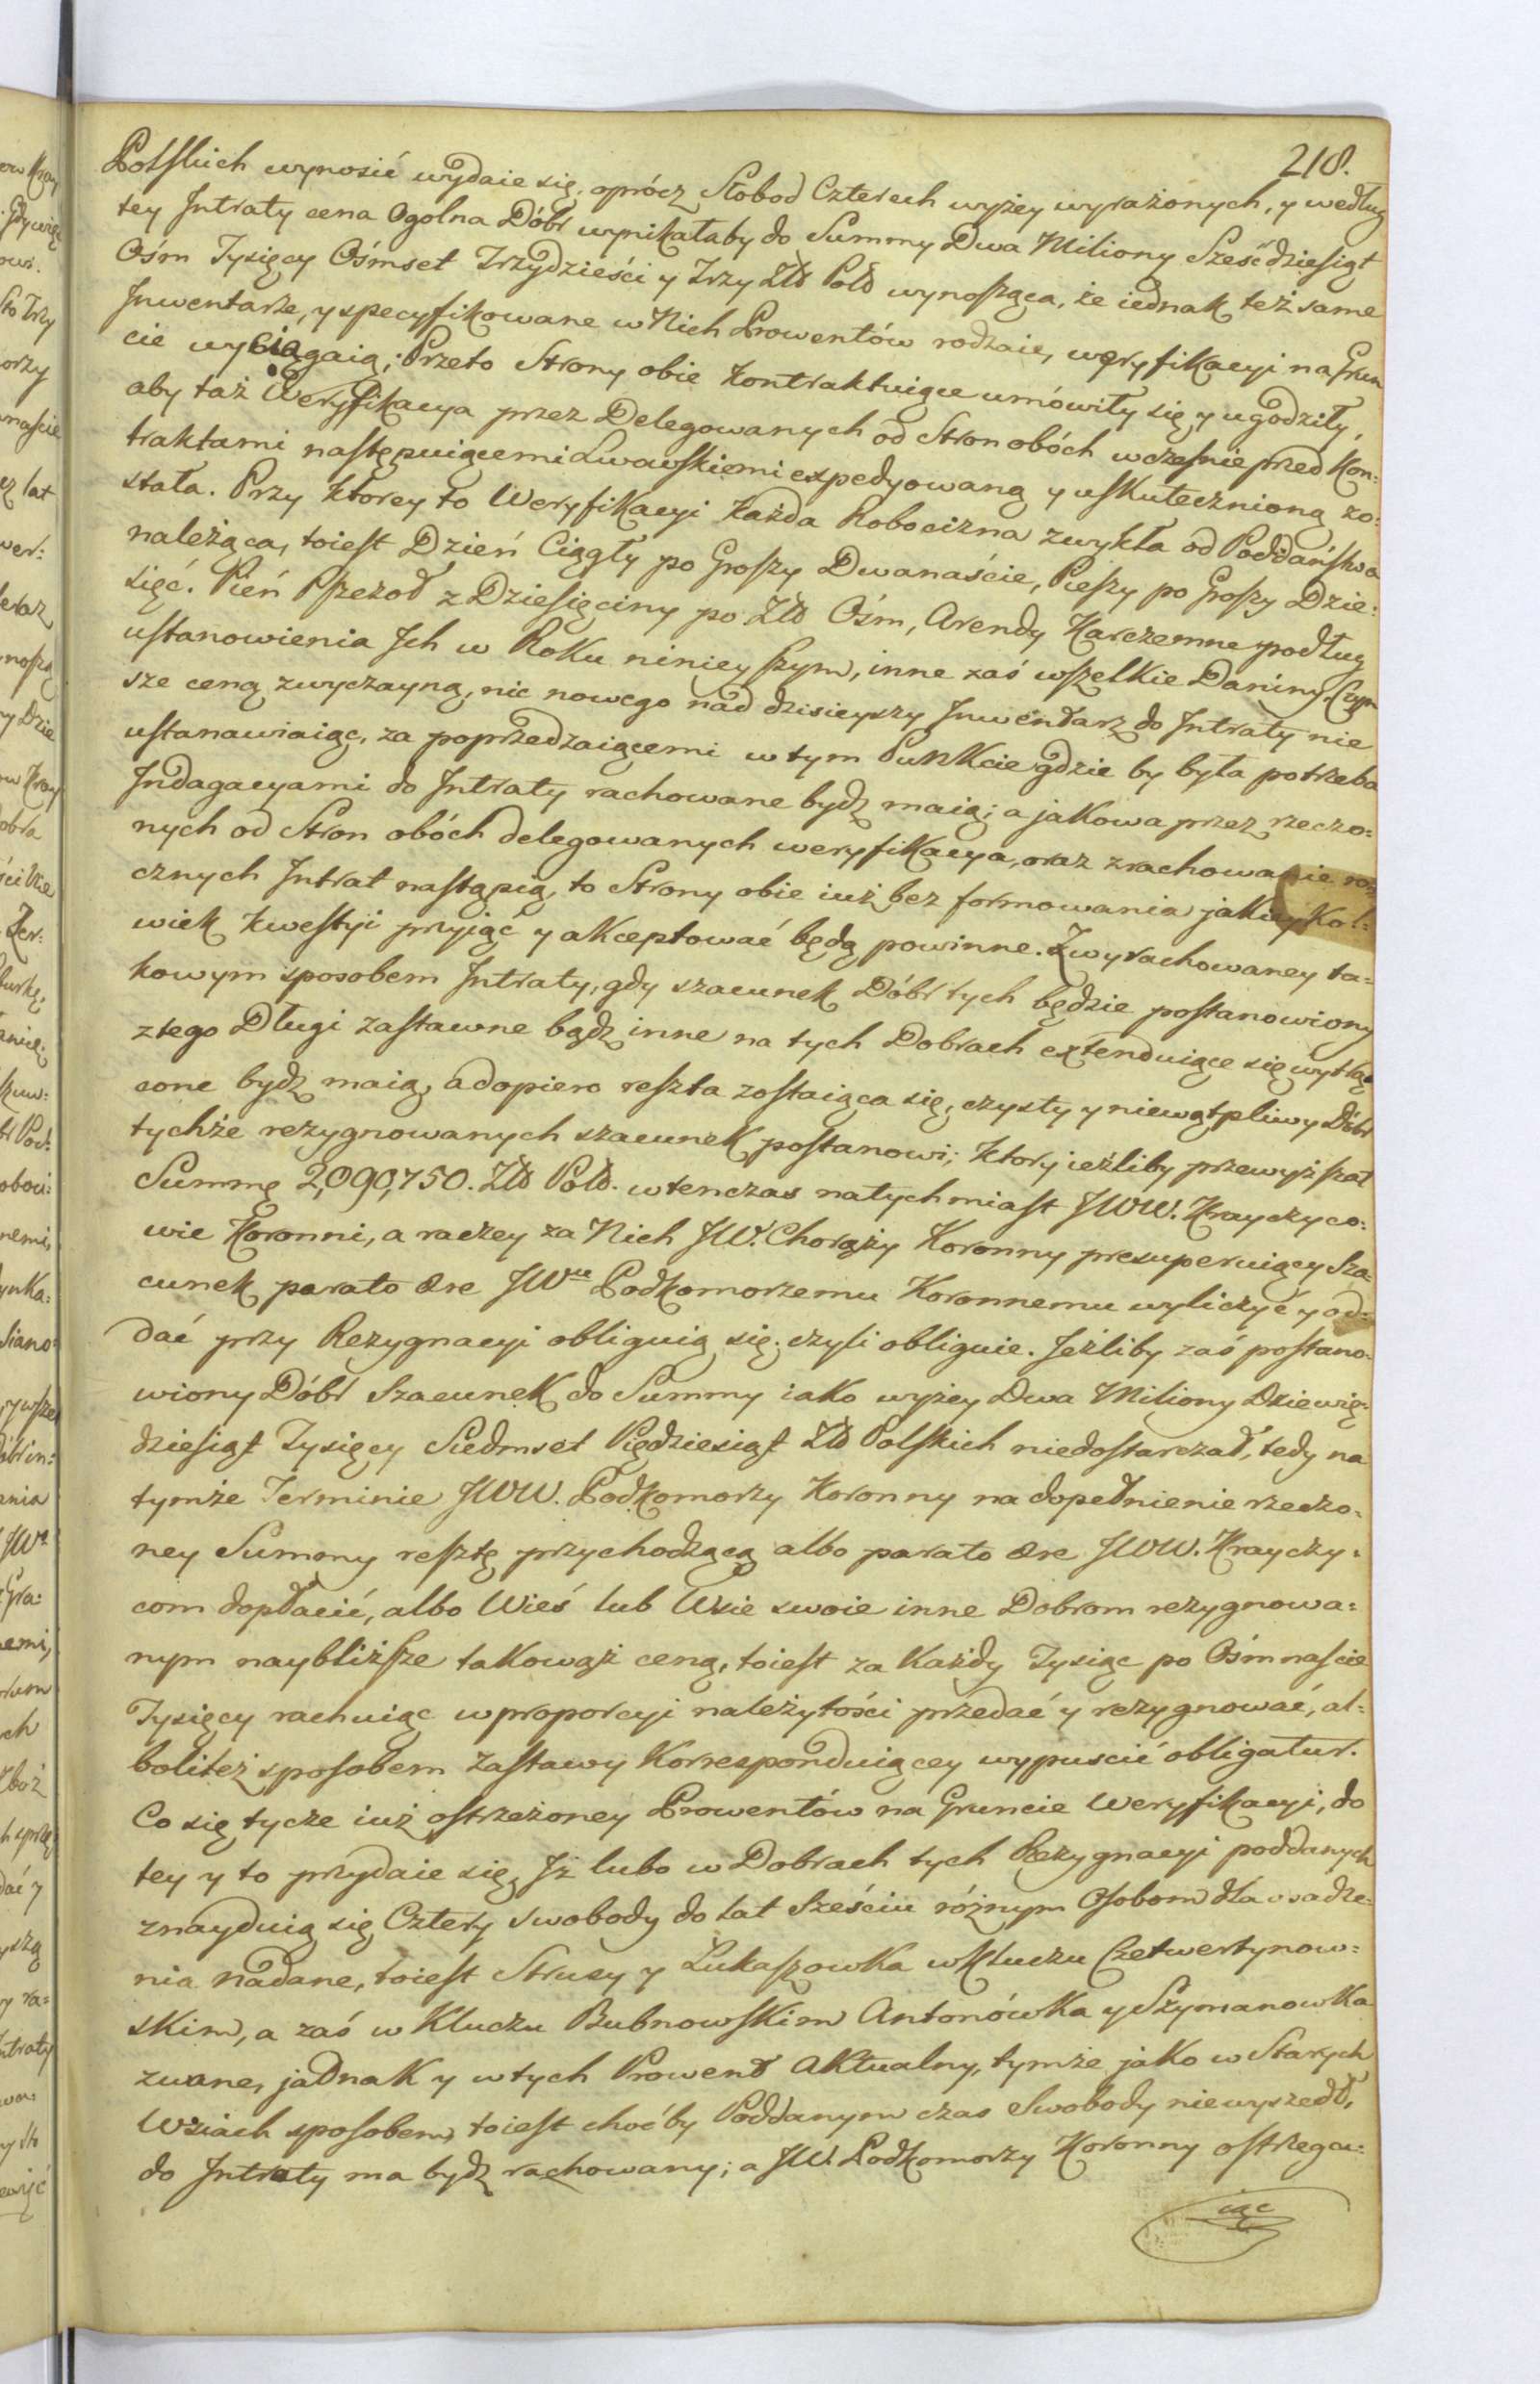 218.
Polskich wynosić wydaie się, oprócz Słobod Czterech wyżey wyrażonych, y według
tey Intraty cena Ogolna Dóbr wynikałaby do Summy Dwa Miliony Sześćdziesiąt
Ośm Tysięcy Ośmset Trzydzieści y Trzy Złł Poll wynosząca, że iednak też same
Inwentarze, y specyfikowane w Nich Prowentów rodzaie, weryfikacyi na Grun
cie wyciągaią; Przeto Strony obie kontraktuiące umówiły się y ugodziły,
aby taż Weryfikacya przez Delegowanych od Stron obóch wcześnie przed Kon:
traktami następuiącemi Lwowskiemi expedyowaną y uskutecznioną zo:
stała. Przy ktorey to Weryfikacyi każda Robocizna zwykła od Poddaństwa
należąca, toiest Dzień Ciągły po Groszy Dwanaście, Pieszy po Groszy Dzie:
sięć. Pień Pszczoł z Dziesięciny po Złł Ośm, Arendy Karczemne podług
ustanowienia Ich w Roku ninieyszym, inne zaś wszelkie Daniny, Czyn
sze ceną zwyczayną, nic nowego nad dzisieyszy Inwentarz do Intraty nie
ustanawiaiąc, za poprzedzaiącemi w tym Punkcie gdzie by była potrzeba
Indagacyami do Intraty rachowane bydz maią; a jakowa przez rzeczo:
nych od Stron obóch delegowanych weryfikacya, oraz zrachowanie ro
cznych Intrat nastąpią, to Strony obie iuż bez formowania jakieykol:
wiek kwestyi przyiąć y akceptować będą powinne. Z wyrachowaney ta:
kowym sposobem Intraty, gdy szacunek Dóbr tych będzie postanowiony
z tego Długi zastawne bądz inne na tych Dobrach extenduiące się wytrą
cone bydz maią, a dopiero reszta zostaiąca się, czysty y niewątpliwy Dóbr
tychże rezygnowanych szacunek postanowi; ktory ieżliby przewyższał
Summę 2,090,750. Złł Poll. wtenczas natychmiast JWW. Krayczyco:
wie Koronni, a raczey za Nich JW. Chorąży Koronny presuperuiący Sza:
cunek parato Ære JWu Podkomorzemu Koronnemu wyliczyć y od:
dać przy Rezygnacyi obliguią się, czyli obliguie. Jeżliby zaś postano:
wiony Dóbr Szacunek do Summy iako wyżey Dwa Miliony Dziewię:
dziesiąt Tysięcy Siedmset Pięćdziesiąt Złł Polskich niedostarczał, tedy na
tymże Terminie JWW. Podkomorzy Koronny na dopełnienie rzeczo:
ney Summy resztę przychodzącą albo parato Ære JWW. Krayczy:
com dopłacić, albo Wieś lub Wsie swoie inne Dobrom rezygnowa:
nym naybliższe takowąż ceną, toiest za Każdy Tysiąc po Ośmnaście
Tysięcy rachuiąc w proporcyi należytości przedać y rezygnować, al:
boliteż sposobem zastawy Korresponduiącey wypuscić obligatur.
Co się tycze iuż ostrzeżoney Prowentów na Gruncie Weryfikacyi, do
tey y to przydaie się, Iż lubo w Dobrach tych Rezygnacyi poddanych
znayduią się Cztery Swobody do lat Sześciu różnym Osobom dla osadze:
nia nadane, toiest Strusy y Łukaszowka w Kluczu Czetwertynow:
skim, a zaś w Kluczu Bubnowskim Antonówka y Szymanowka
zwane, jadnak y w tych Prowent Aktualny, tymże jako w Starych
Wsiach sposobem, toiest choćby Poddanym czas Swobody niewyszedł,
do Intraty ma bydz rachowany; a JW. Podkomorzy Koronny ostrzega:
iąc